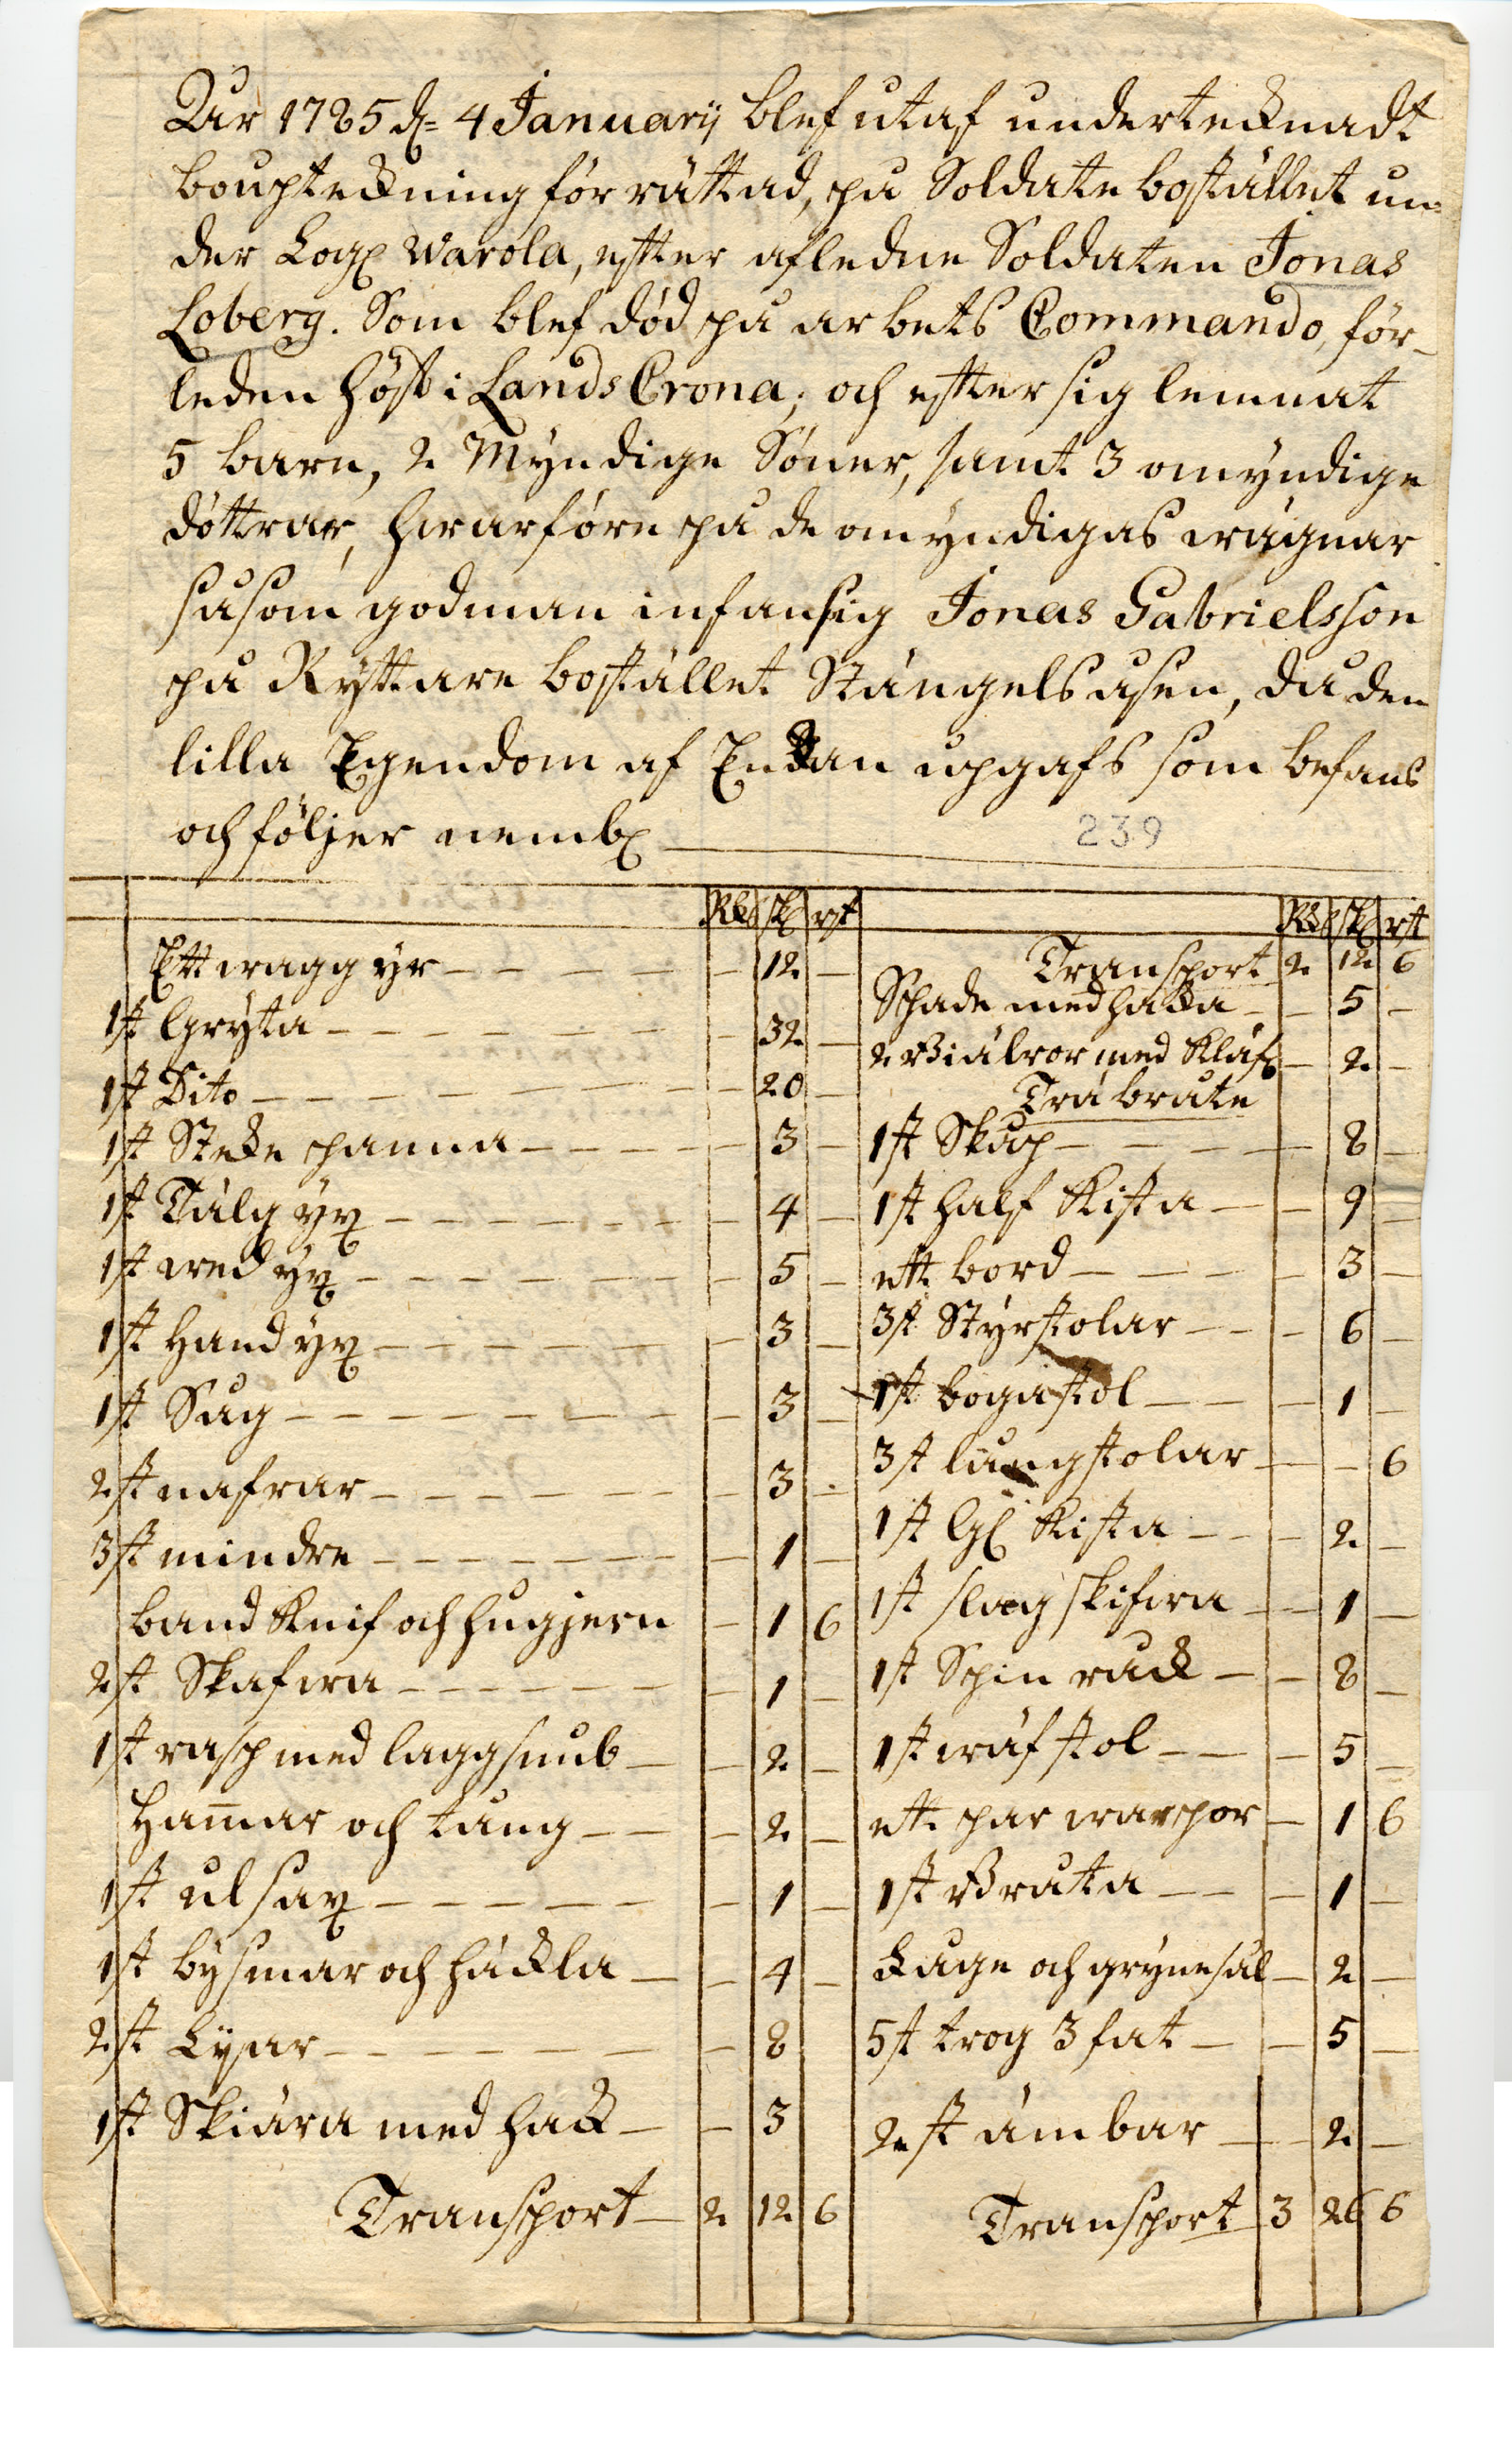 Åhr 1785 d= 4 Januarij blef utaf underteknadt
boupteckning förrättad, på Soldate bostället un=
der Log: Warola, efter afledne Soldaten Jonas
Loberg. Som blef död på arbets Commando, för-
leden höst i LandsCrona; och efter sig lemnat
5 barn, 2 Myndige Söner, samt 3 omyndige
döttrar, hwarföre på de omyndigas wägnar
såsom godman infan sig Jonas Gabrielsson
på Ryttare bostället Stångelsåsen, då den
lilla Egendom af Enckan upgafs som befans
och följer nembl:
239
Rd sk rst
Ett wägg ur - 12 -
1 st Gryta - 32 -
1 st Dito - 20 -
1 st Steke panna - 3 -
1 st Tälg yx - 4 -
1 st wed yx - 5 -
1 st Hand yx - 3 -
1 st Såg - 3 -
2 st nafrar - 3 -
3 st mindre - 1 -
band Knif och hugjern - 1 6
2 st Skafwa - 1 -
1 st rasp med laggsnub - 2 -
Ham̅ar och tång - 2 -
1 st ulsax - 1 -
1 st bysmar och häckla - 4 -
2 st Lyar - 8
1 st Skiära med hack - 3
Transport 2 12 6
Rd sk rst
Transport 2 12 6
Spade med hacka - 5 -
2 Biälror med Kläf - 2 -
Trä bråte
1 st Skåp - 8 -
1 st half Kista - 9 -
ett bord - 3 -
3 st Styrstolar - 6 -
1 st bogastol - 1 -
3 st långstolar - - 6
1 st Gl: Kista - 2 -
1 st slagskifwa - 1 -
1 st Spin råck - 8 -
1 st wäfstol - 5 -
ett par warpor - 1 6
1 st Bråta - 1 -
Låge och grynesål - 2 -
5 st trog 3 fat - 5 -
2 st ämbar - 2 -
Transport 3 26 6